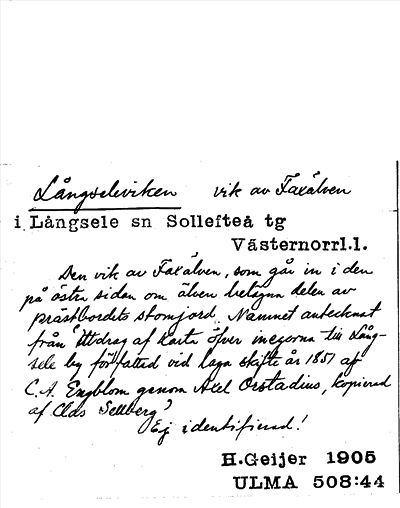 Långseleviken vik av Faxälven
i Långsele sn Sollefteå tg
Västernorrl.l.
Den vik av Faxälven, som går in i den
på östra sidan om älven belägna delen av
prästbordets stomjord. Namnet antecknat
från "Utdrag af Karta öfver inegorna till Lång-
sele by författad vid laga skifte år 1851 af
C.A. Engblom genom Axel Orstadius, kopierad
af Clas Sellberg"
Ej identifierad!
H.Geijer 1905
ULMA 508:44